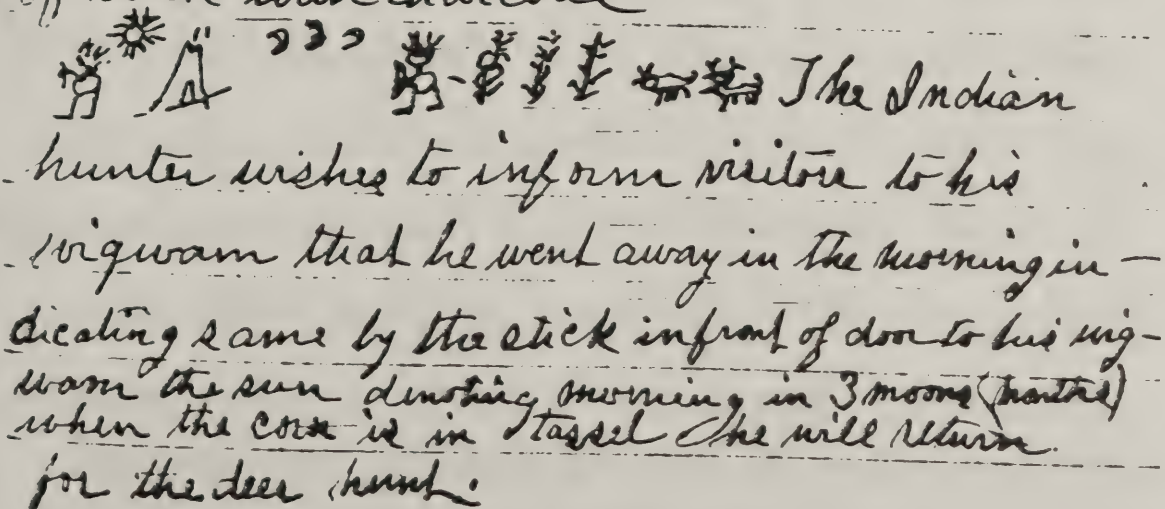 The Indian
hunter wishes to inform visitors to his
wigwam that he went away in the morning in-
dicating same by the stick in front of door to his wig-
wam the sun denoting morning in 3 moons (months)
when the corn is in tassel he will return
for the deer hunt.